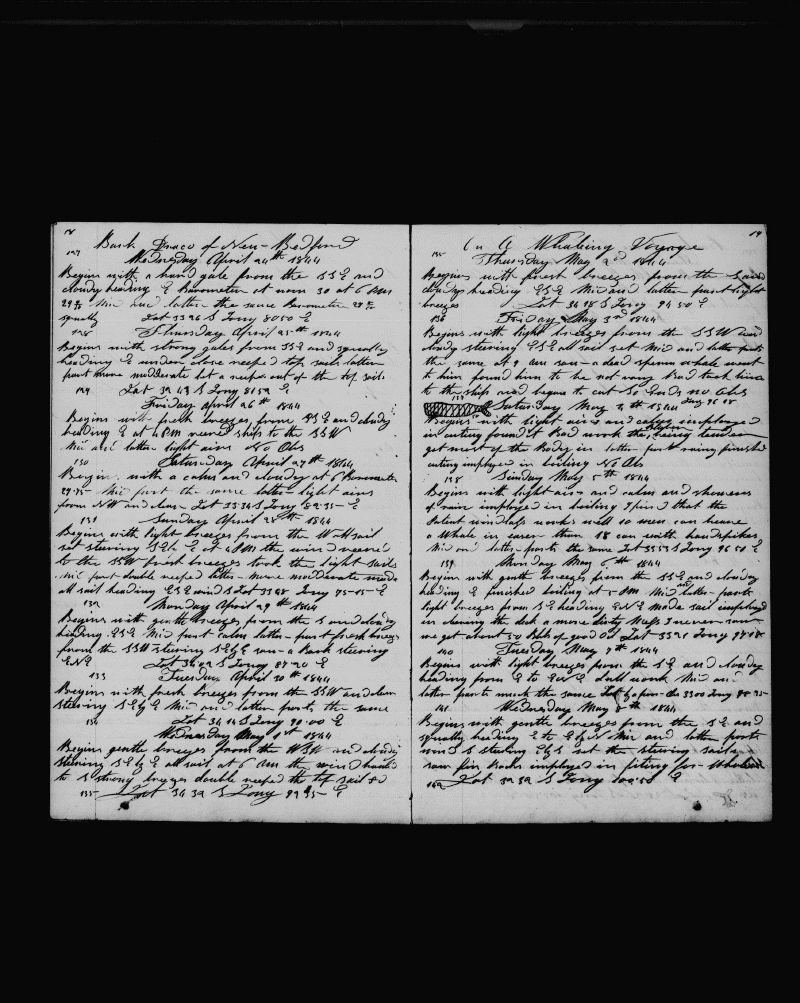 18
Bark Draco of New-Bedford
127
Wednesday April 24th 1844
Begins with a hard gale from the SSE and
cloudy heading E Barometer at noon 30 at 6 AM
Mid and latter the same Barometer
squally Lat 33 26 S Long 80 50 E
128 Thursday April 25th 1844
Begins with strong gales from SSE and squally
heading E under close reefed top sails latter
part more modderate let a reef out of the top sails
129 Lat 32 43 S Long 81 59 E
Friday April 26th 1844
Begins with fresh breezes from SSE and cloudy
heading E at 4 PM veered ship to the SSW
Mid and latter light airs No Obs
130 Saturday April 27th 1844
Begins with a calm and cloudy at 6 Barometer
29-75 Mid part the same latter light airs
from NW and clear Lat 33 34 S Long 82-35 E
131 Sunday April 28th 1844
Begins with light breezes from the W all sail
set steering SE by E at 4 PM the wind veered
to the SSW fresh breezes took the light sails
Mid part double reefed latter more modderate made
all sail heading ESE wind S Lat 33 48 Long 85-15 E
132 Monday April 29th 1844
Begins with gentle breezes from the S and cloudy
heading ESE Mid part calm latter part fresh breezes
from the SSW steering SE by E saw a Bark steering
ENE Lat 34 02 S Long 87-20 E
133 Tuesday April 30th 1844
Begins with fresh breezes from the SSW and clear
steering SE by E Mid and latter parts the same
134 Lat 34 14 S Long 90-00 E
Wednesday May 1st 1844
Begins gentle breezes from the WSW and cloudy
steering SE by E all sail at 6 AM the wind hauled
to S strong breezes double reefed the top sail
135 Lat 34 32 S Long E
On A Whaling Voyage
19
135 Thursday May 2nd 1844
Begins with fresh breezes from the S and
cloudy heading ESE Mid and latter part light
breezes Lat 34 28 S Long 94 50 E
136 Friday May 3rd 1844
Begins with light breezes from the SSW and
cloudy steering ESE all sail set Mid and latter parts
the same at 9 AM saw a dead sperm whale went
to him found him to be not very Bad took him
to the ship and begun to cut So Ends no Obs
137 Saturday May 4th 1844 Long 96 08
Begins with light airs and calms imployed
in cutting found it Bad work the being tender
get most of the Body in latter part rainy finished
cutting imployed in boiling No Obs
138 Sunday May 5th 1844
Begins with light airs and calms and showers
of rain imployed in boiling I find that the
Patent windlass works well 10 men can heave
a Whale in easier than 18 can with handspikes
Mid and latter parts the same Lat 33 53 S Long 96 51 E
139 Monday May 6th 1844
Begins with gentle breezes from the SSE and cloudy
heading E finished boiling at 5 PM Mid and latter parts
light breezes from S heading ENE made sail imployed
in clearing the deck a more dirty Mess I never saw
we got about 50 Bbls of good Oil Lat 33 21 Long 97 18
140 Tuesday May 7th 1844
Begins with light breezes from the SE and cloudy
heading from E to ENE dull work Mid and
latter parts much the same Lat 33 00 Long 98 35
141 Wednesday May 8th 1844
Begins with gentle breezes from the SE and
squally heading E to E by N Mid and latter parts
wind S steering E by S set the steering sails
saw fin Backs imployed in fiting for Whales
142 Lat 32 52 S Long 100 51 E